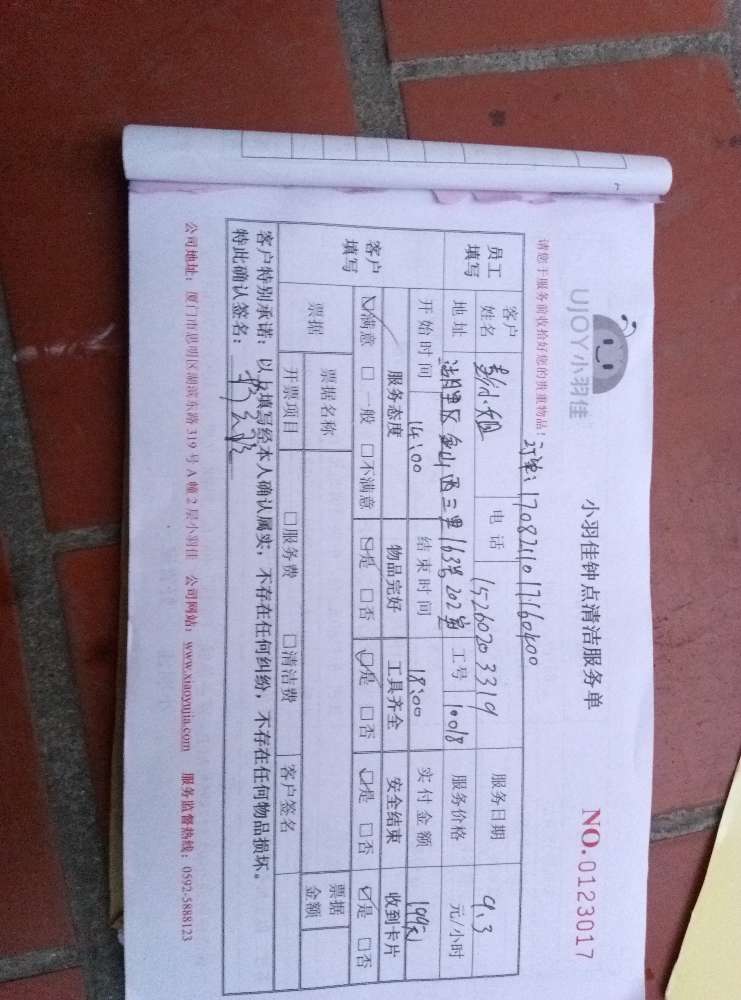 UJOY小羽佳
小羽佳钟点清洁服务单
NO.0123017
请您于服务前收拾好您的贵重物品！
员工填写 客户姓名 彭小姐 电话 15260203319 服务日期 9.3
地址 湖里区金山西三里163号202室 工号 10018 服务价格 元/小时
开始时间 14:00 结束时间 18:00 实付金额 199元
客户填写 服务态度 物品完好 工具齐全 安全结束 收到卡片
☑满意 □一般 □不满意 ☑是 □否 ☑是 □否 ☑是 □否 ☑是 □否
票据 票据名称 票据金额
开票项目 □服务费 □清洁费 客户签名
客户特别承诺：以上填写经本人确认属实，不存在任何纠纷，不存在任何物品损坏。
特此确认签名：
公司地址：厦门市思明区湖滨东路319号A幢2层小羽佳 公司网站：www.xiaoyujia.com 服务监督热线：0592-5888123